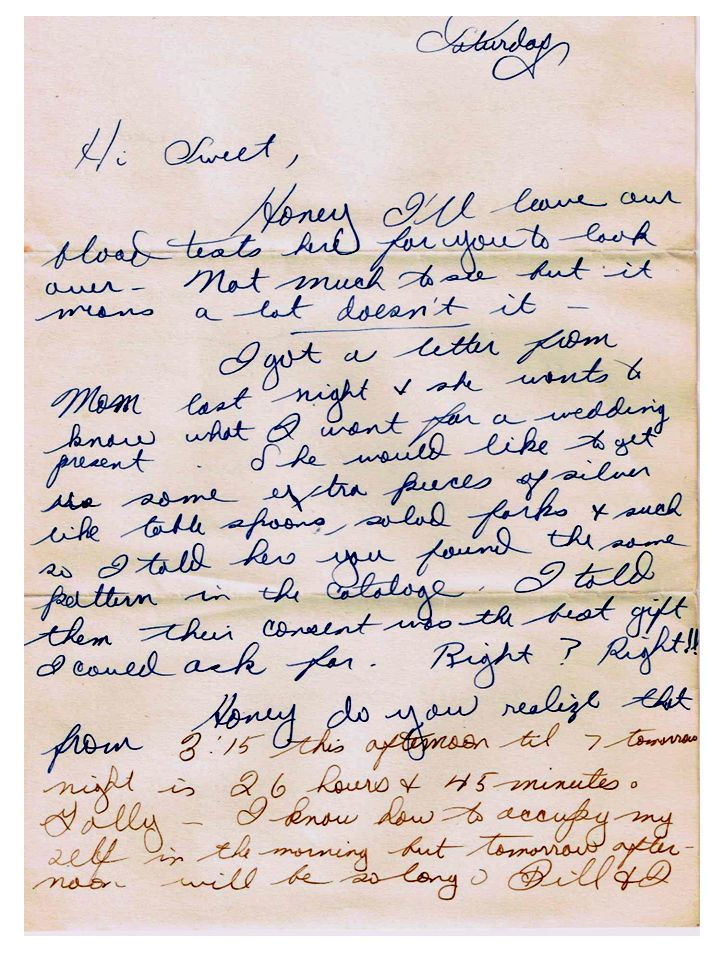 Saturday
Hi Sweet,
Honey I'll leave our
blood tests here for you to look
over - Not much to see but it
means a lot doesn't it -
I got a letter from
Mom last night & she wants to
know what I want for a wedding
present. She would like to get
us some extra pieces of silver
like table spoons, salad forks & such
so I told her you found the same
pattern in the cataloge. I told
them their consent was the best gift
I could ask for. Right? Right!!
Honey do you realize that
from 3:15 this afternoon til 7 tomorrow
night is 26 hours & 45 minutes.
Golly - I know how to occupy my
self in the morning but tomorrow after-
noon will be so long. Bill & I